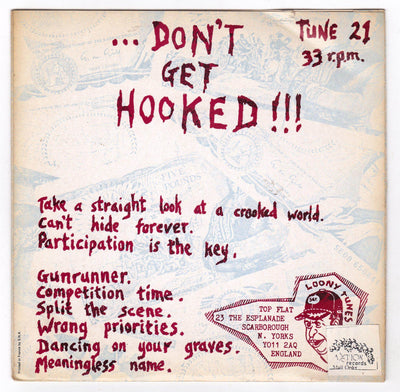 ...DON'T
GET
HOOKED!!!
TUNE 21
33 r.p.m.
Take a straight look at a crooked world.
Can't hide forever.
Participation is the key.
Gunrunner.
Competition time.
Split the scene.
Wrong priorities.
Dancing on your graves.
Meaningless name.
LOONY TUNES
TOP FLAT
23 THE ESPLANADE
SCARBOROUGH
N. YORKS
YO11 2AQ
ENGLAND
records
Mail Order